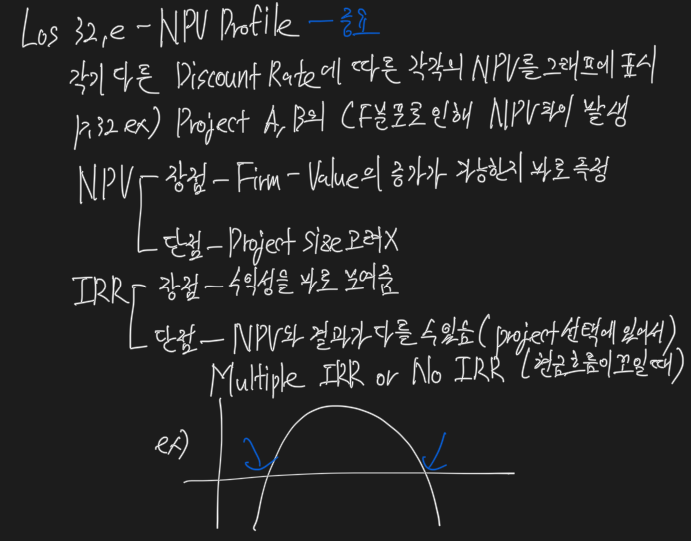 Los 32,e - NPV Profile - 중요
각기 다른 Discount Rate에 따른 각각의 NPV를 그래프에 표시
p.32 ex) Project A, B의 CF분포로 인해 NPV차이 발생
NPV 장점 - Firm-Value의 증가가 가능한지 바로 측정
단점 - Project Size 고려X
IRR 장점 - 수익성을 바로 보여줌
단점 - NPV와 결과가 다를 수 있음 (project 선택에 있어서)
Multiple IRR or No IRR (현금흐름이 꼬일때)
ex)